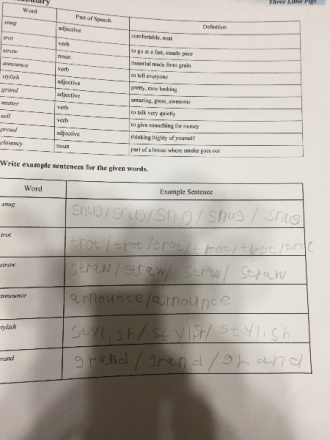 Vocabulary Three Little Pigs
Word Part of Speech Definition
snug adjective comfortable, neat
trot verb to go at a fast, steady pace
straw noun material made from grain
announce verb to tell everyone
stylish adjective pretty, nice looking
grand adjective amazing, great, awesome
mutter verb to talk very quietly
sell verb to give something for money
proud adjective thinking highly of yourself
chimney noun part of a house where smoke goes out
Write example sentences for the given words.
Word Example Sentence
snug snug/snug/snug/snug/snug
trot trot/trot/trot/trot/trot/trot
straw straw/straw/straw/straw
announce announce/arnounce
stylish stylish/stylish/stylish
grand grand/grand/grand